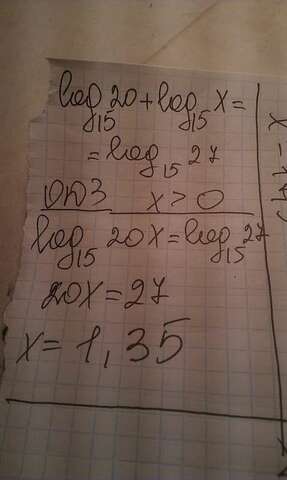 log₁₅20+log₁₅x=
=log₁₅27
ОДЗ x>0
log₁₅20x=log₁₅27
20x=27
x=1,35